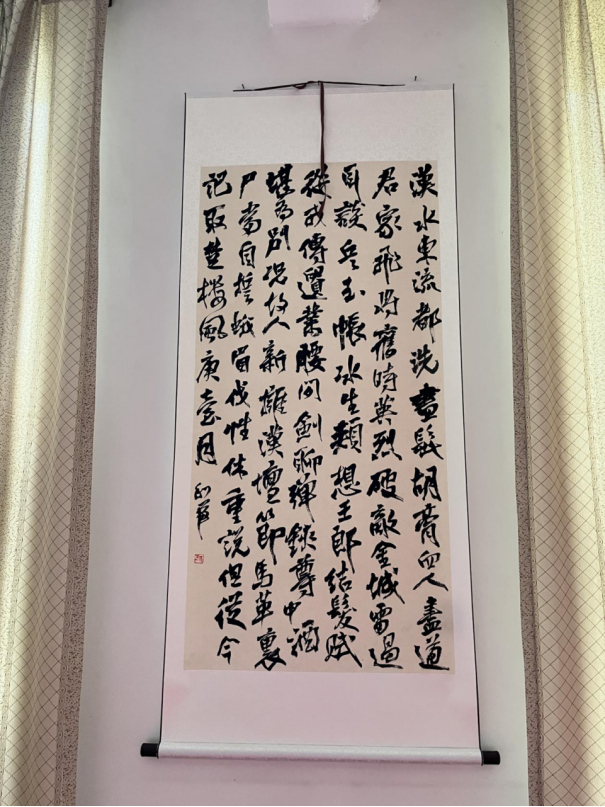 漢水東流都洗盡髭胡膏血人盡道
君家飛將舊時英烈破敵金城雷過
耳談兵玉帳冰生頰想王郎結髮賦
從戎傳遺業腰間劍聊彈鋏尊中酒
堪為別況故人新擁漢壇節馬革裹
尸當自誓蛾眉伐性休重說但從今
記取楚樓風庾臺月